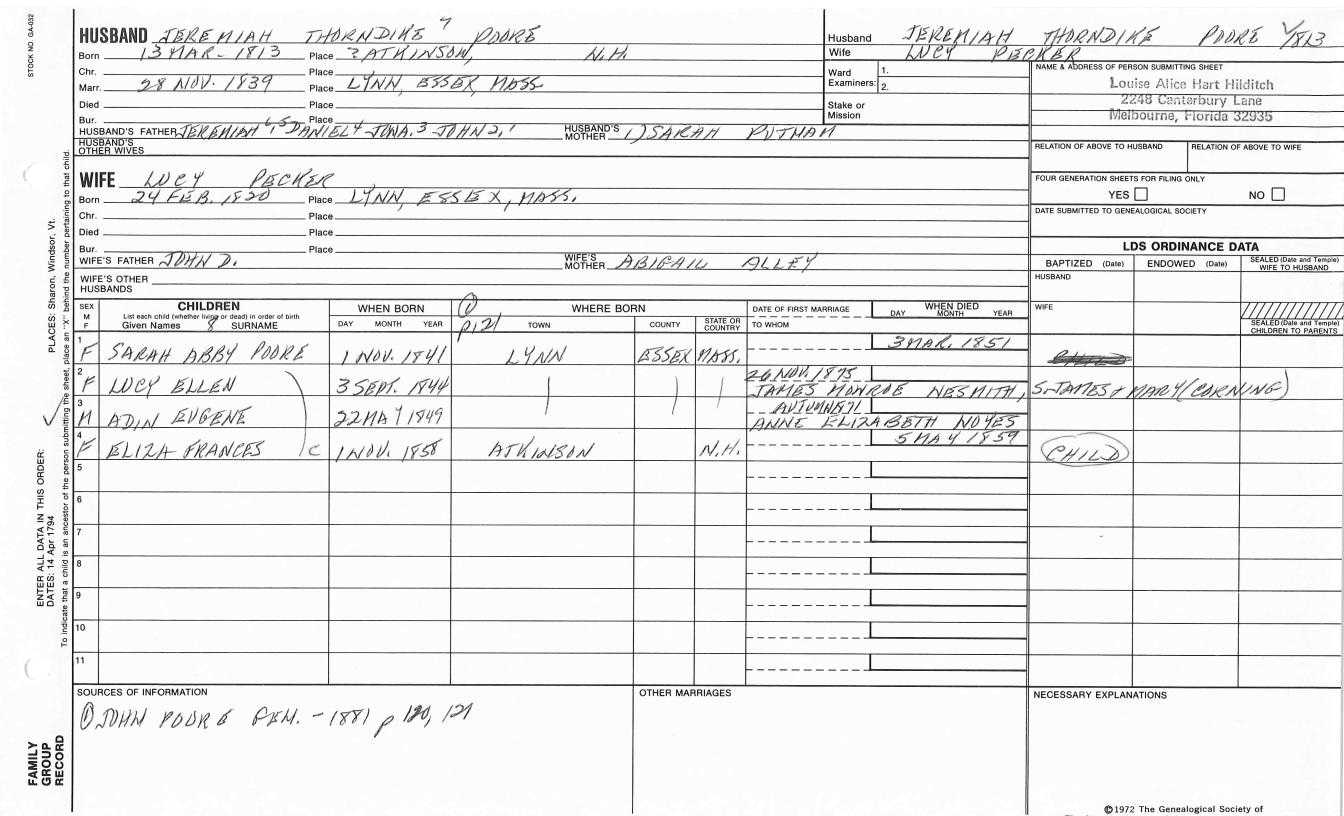 STOCK NO. GA-032
HUSBAND JEREMIAH THORNDIKE 7 POORE
Born 13 MAR - 1813 Place ? ATKINSON, N.H.
Chr. Place
Marr. 28 NOV. 1839 Place LYNN, ESSEX, MASS.
Died Place
Bur. Place
HUSBAND'S FATHER JEREMIAH 6,5 DANIEL 4 JONA. 3 JOHN 2,1 HUSBAND'S MOTHER 1) SARAH PUTNAM
HUSBAND'S OTHER WIVES
Husband JEREMIAH THORNDIKE POORE 1/813
Wife LUCY PECKER
Ward Examiners: 1.
2.
Stake or Mission
NAME & ADDRESS OF PERSON SUBMITTING SHEET
Louise Alice Hart Hilditch
2248 Canterbury Lane
Melbourne, Florida 32935
RELATION OF ABOVE TO HUSBAND RELATION OF ABOVE TO WIFE
FOUR GENERATION SHEETS FOR FILING ONLY
YES NO
DATE SUBMITTED TO GENEALOGICAL SOCIETY
WIFE LUCY PECKER
Born 24 FEB. 1820 Place LYNN, ESSEX, MASS.
Chr. Place
Died Place
Bur. Place
WIFE'S FATHER JOHN D. WIFE'S MOTHER ABIGAIL ALLEY
WIFE'S OTHER HUSBANDS
LDS ORDINANCE DATA
BAPTIZED (Date) ENDOWED (Date) SEALED (Date and Temple) WIFE TO HUSBAND
HUSBAND
WIFE
SEALED (Date and Temple) CHILDREN TO PARENTS
SEX M F CHILDREN List each child (whether living or dead) in order of birth Given Names 8 SURNAME
WHEN BORN DAY MONTH YEAR
① p121 WHERE BORN TOWN COUNTY STATE OR COUNTRY
DATE OF FIRST MARRIAGE TO WHOM
WHEN DIED DAY MONTH YEAR
1 F SARAH ABBY POORE 1 NOV. 1841 LYNN ESSEX MASS. 3 MAR. 1851
2 F LUCY ELLEN 3 SEPT. 1844 26 NOV. 1875 JAMES MONROE NESMITH, S-JAMES + MARY (CORNING)
3 M ADIN EUGENE 22 MAY 1849 AUTUMN 1871 ANNE ELIZABETH NOYES
4 F ELIZA FRANCES C 1 NOV. 1858 ATKINSON N.H. 5 MAY 1859 CHILD
5
6
7
8
9
10
11
SOURCES OF INFORMATION
① JOHN POORE GEN. - 1881 p 120, 121
OTHER MARRIAGES
NECESSARY EXPLANATIONS
©1972 The Genealogical Society of
PLACES: Sharon, Windsor, Vt.
ENTER ALL DATA IN THIS ORDER:
DATES: 14 Apr 1794
To indicate that a child is an ancestor of the person submitting the sheet, place an "X" behind the number pertaining to that child.
FAMILY
GROUP
RECORD